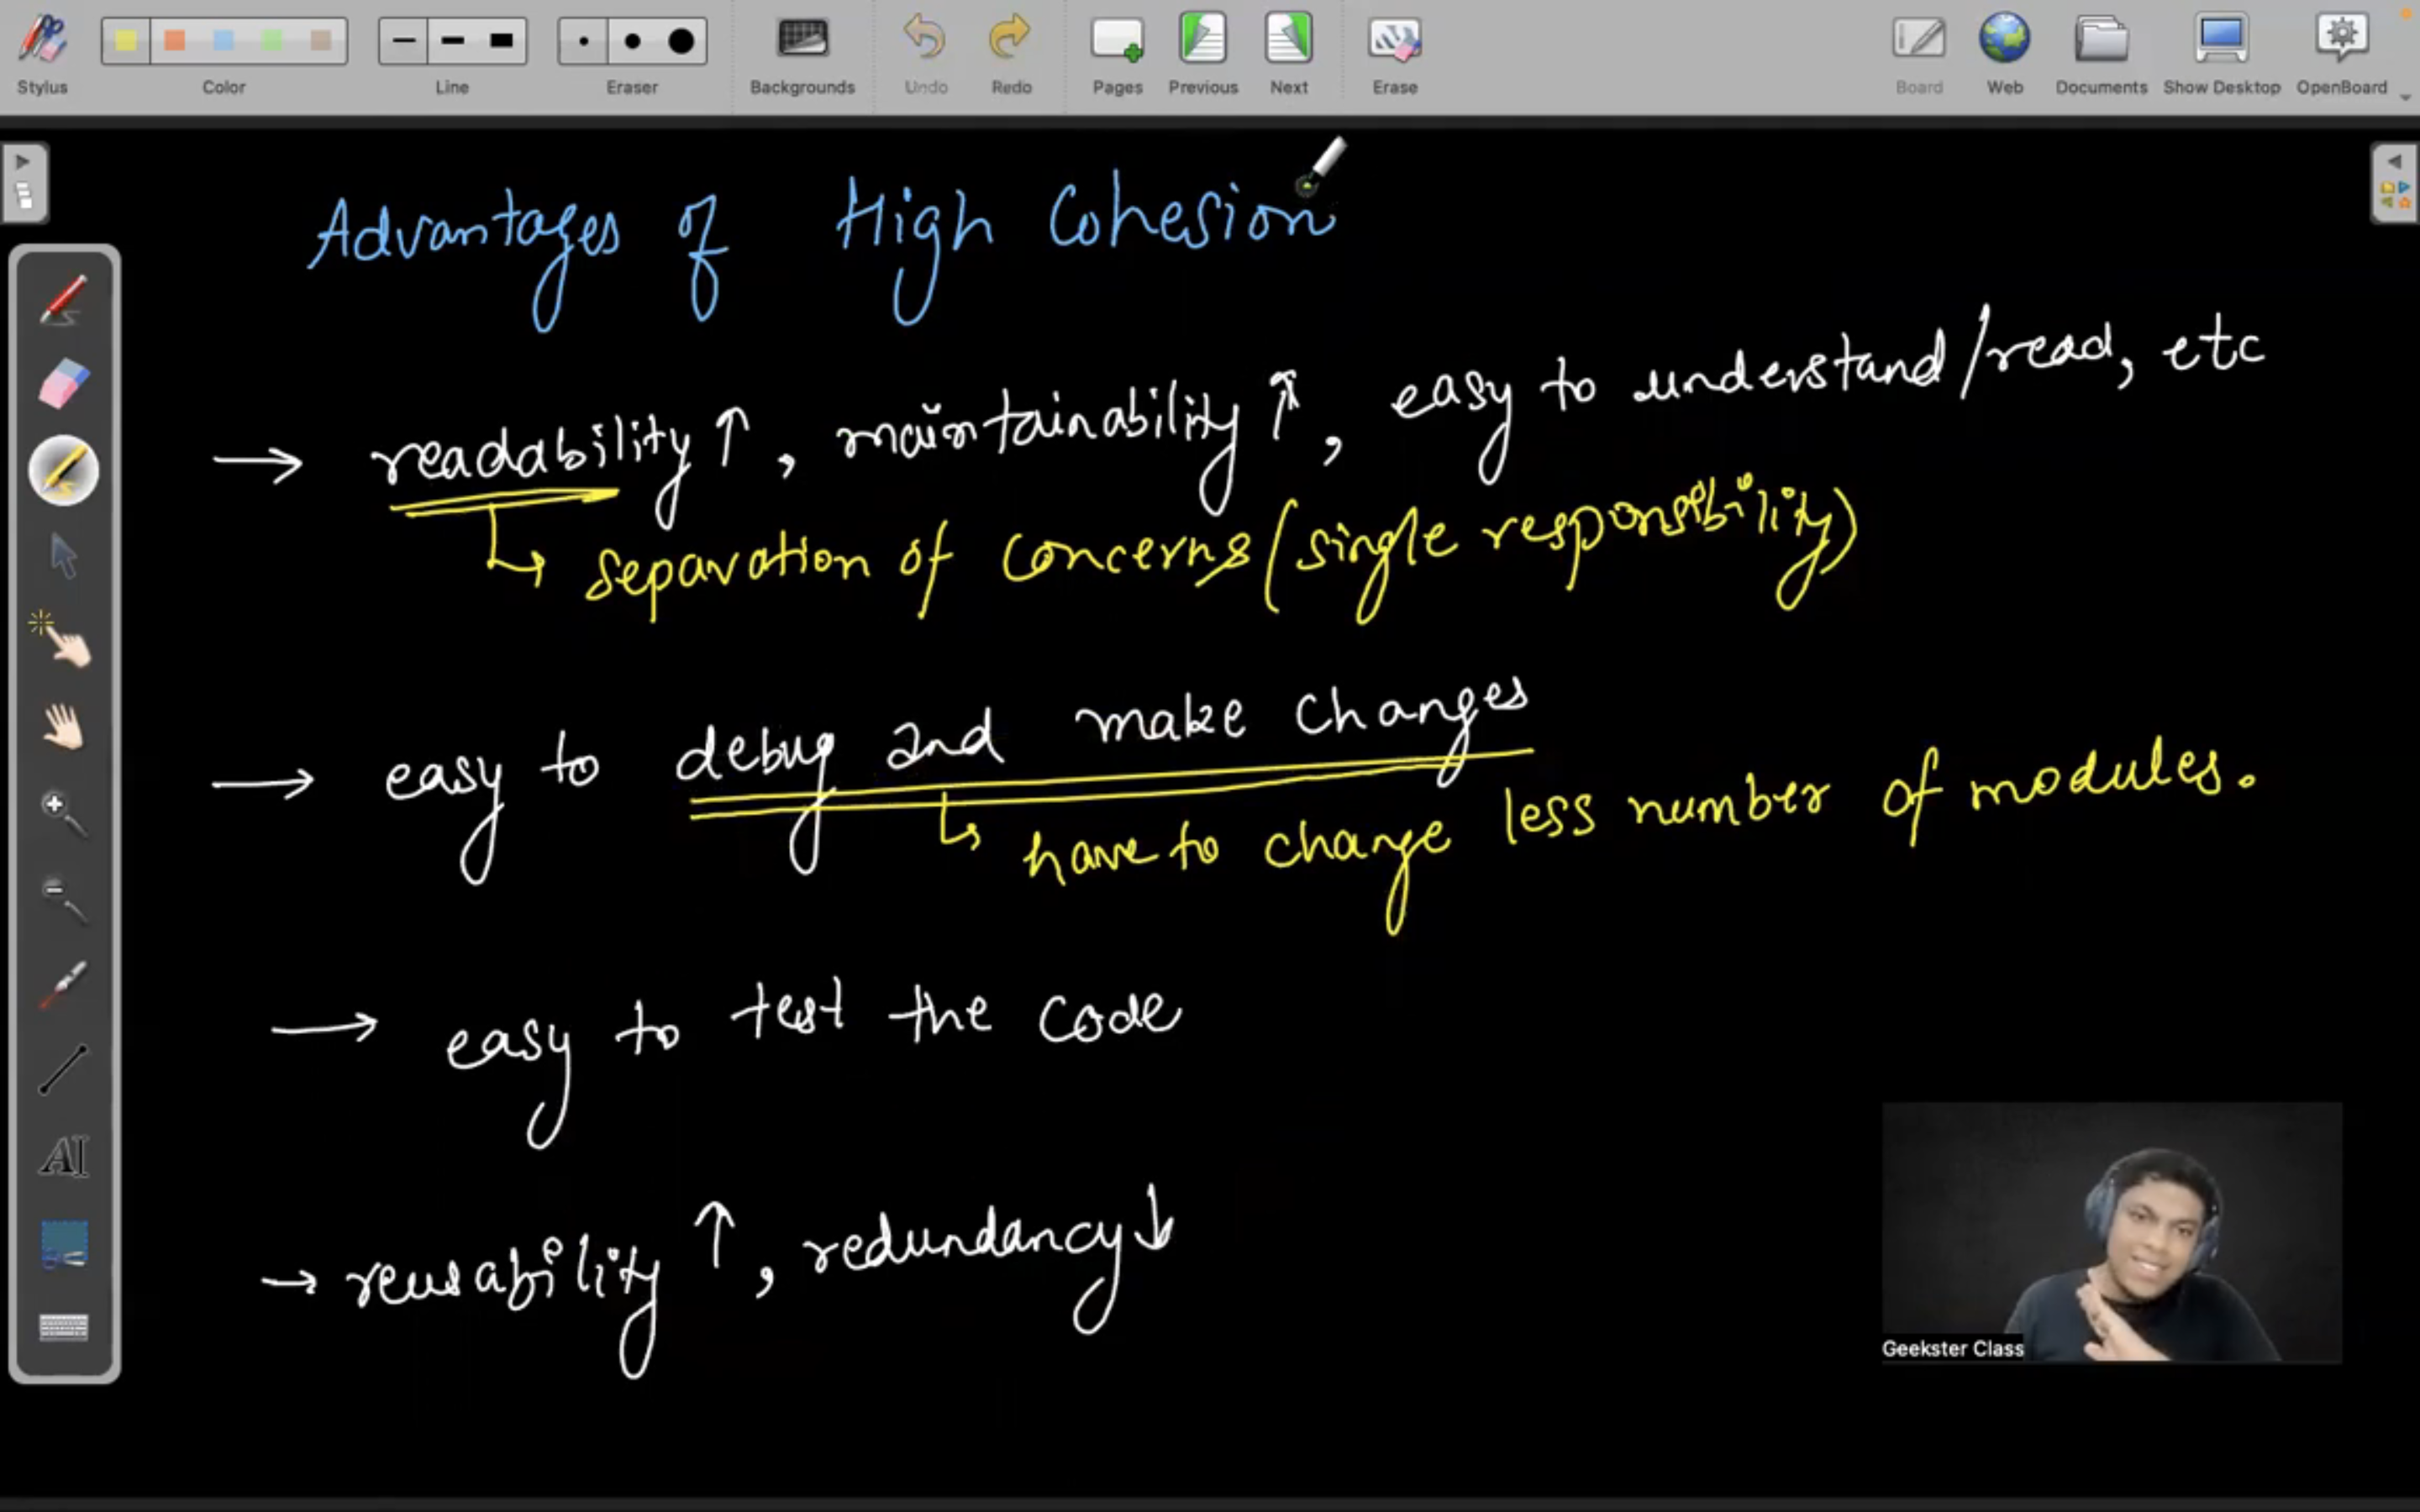 Stylus Color Line Eraser Backgrounds Undo Redo Pages Previous Next Erase Board Web Documents Show Desktop OpenBoard
Advantages of High Cohesion
→ readability ↑, maintainability ↑, easy to understand/read, etc
↳ separation of concerns (single responsibility)
→ easy to debug and make changes
↳ have to change less number of modules.
→ easy to test the code
→ reusability ↑, redundancy ↓
AI
Geekster Class